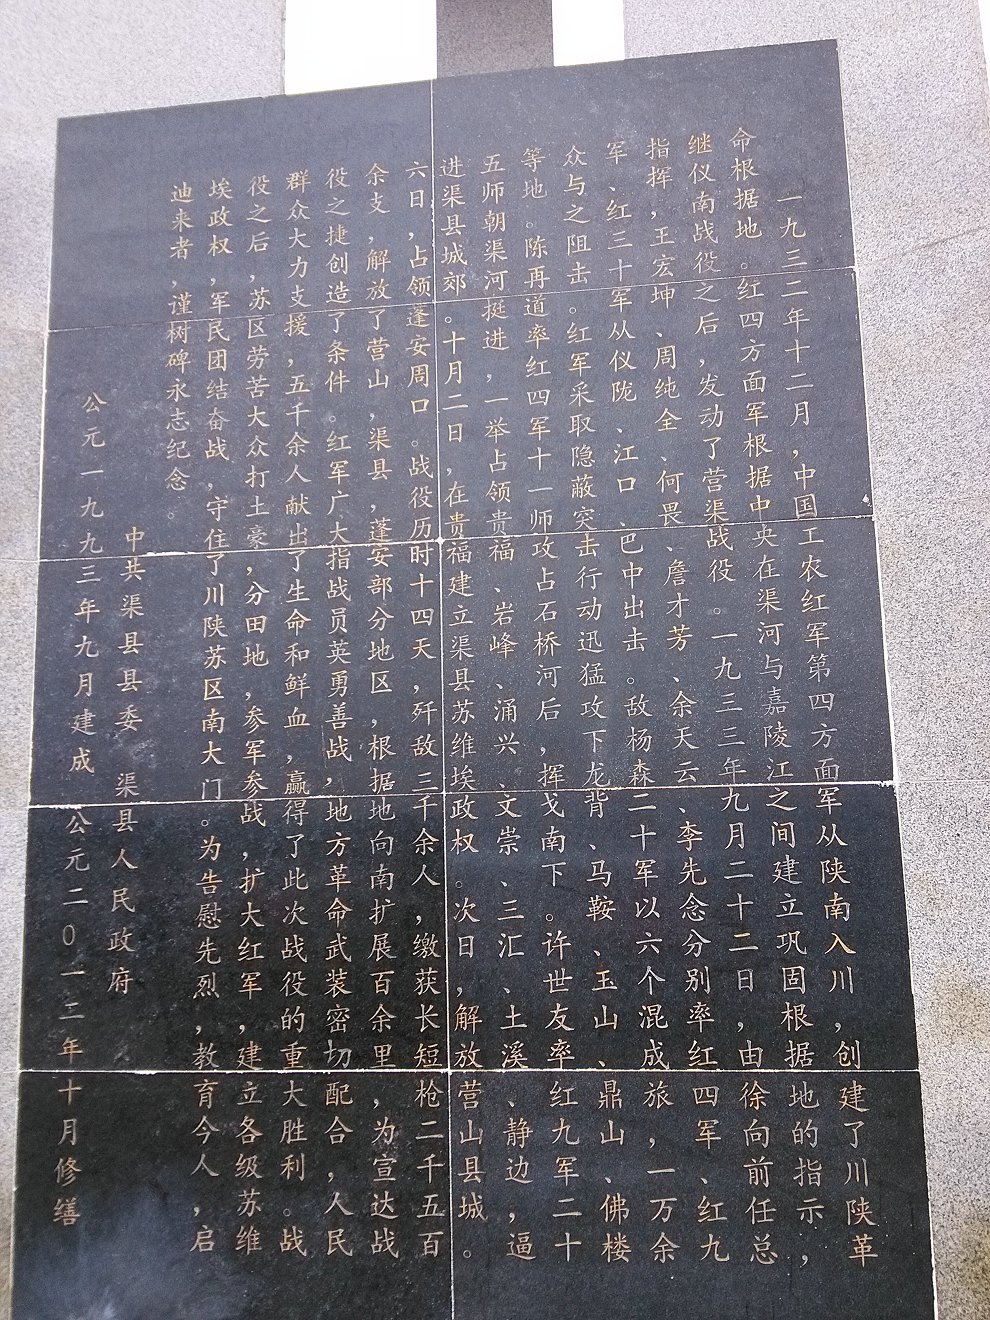 一九三二年十二月，中国工农红军第四方面军从陕南入川，创建了川陕革
命根据地。红四方面军根据中央在渠河与嘉陵江之间建立巩固根据地的指示，
继仪南战役之后，发动了营渠战役。一九三三年九月二十二日，由徐向前任总
指挥，王宏坤、周纯全、何畏、詹才芳、余天云、李先念分别率红四军、红九
军、红三十军从仪陇、江口、巴中出击。敌杨森二十军以六个混成旅，一万余
众与之阻击。红军采取隐蔽突击行动迅猛攻下龙背、马鞍、玉山、鼎山、佛楼
等地。陈再道率红四军十一师攻占石桥河后，挥戈南下。许世友率红九军二十
五师朝渠河挺进，一举占领贵福、岩峰、涌兴、文崇、三汇、土溪、静边，逼
进渠县城郊。十月二日，在贵福建立渠县苏维埃政权。次日，解放营山县城。
六日，占领蓬安周口。战役历时十四天，歼敌三千余人，缴获长短枪二千五百
余支，解放了营山，渠县，蓬安部分地区，根据地向南扩展百余里，为宣达战
役之捷创造了条件。红军广大指战员英勇善战，地方革命武装密切配合，人民
群众大力支援，五千余人献出了生命和鲜血，赢得了此次战役的重大胜利。战
役之后，苏区劳苦大众打土豪，分田地，参军参战，扩大红军，建立各级苏维
埃政权，军民团结奋战，守住了川陕苏区南大门。为告慰先烈，教育今人，启
迪来者，谨树碑永志纪念。
中共渠县县委 渠县人民政府
公元一九九三年九月建成 公元二0一三年十月修缮